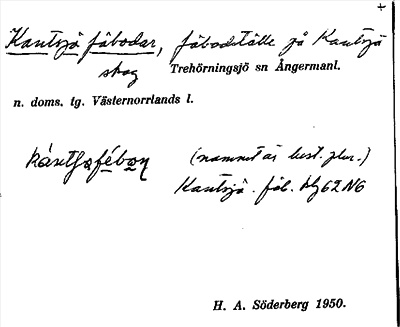 +
Kantsjö fäbodar, fäbodställe på Kantsjö
skog Trehörningsjö sn Ångermanl.
n. doms. tg. Västernorrlands l.
(namnet är best. plur.)
Kantsjö . fäb. Hg62N6
H. A. Söderberg 1950.